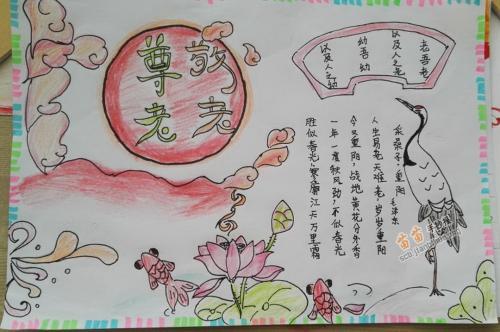 敬老
尊老
老吾老
以及人之老
幼吾幼
以及人之幼
采桑子·重阳
毛泽东
人生易老天难老,岁岁重阳
今又重阳,战地黄花分外香
一年一度秋风劲,不似春光
胜似春光,寥廓江天万里霜